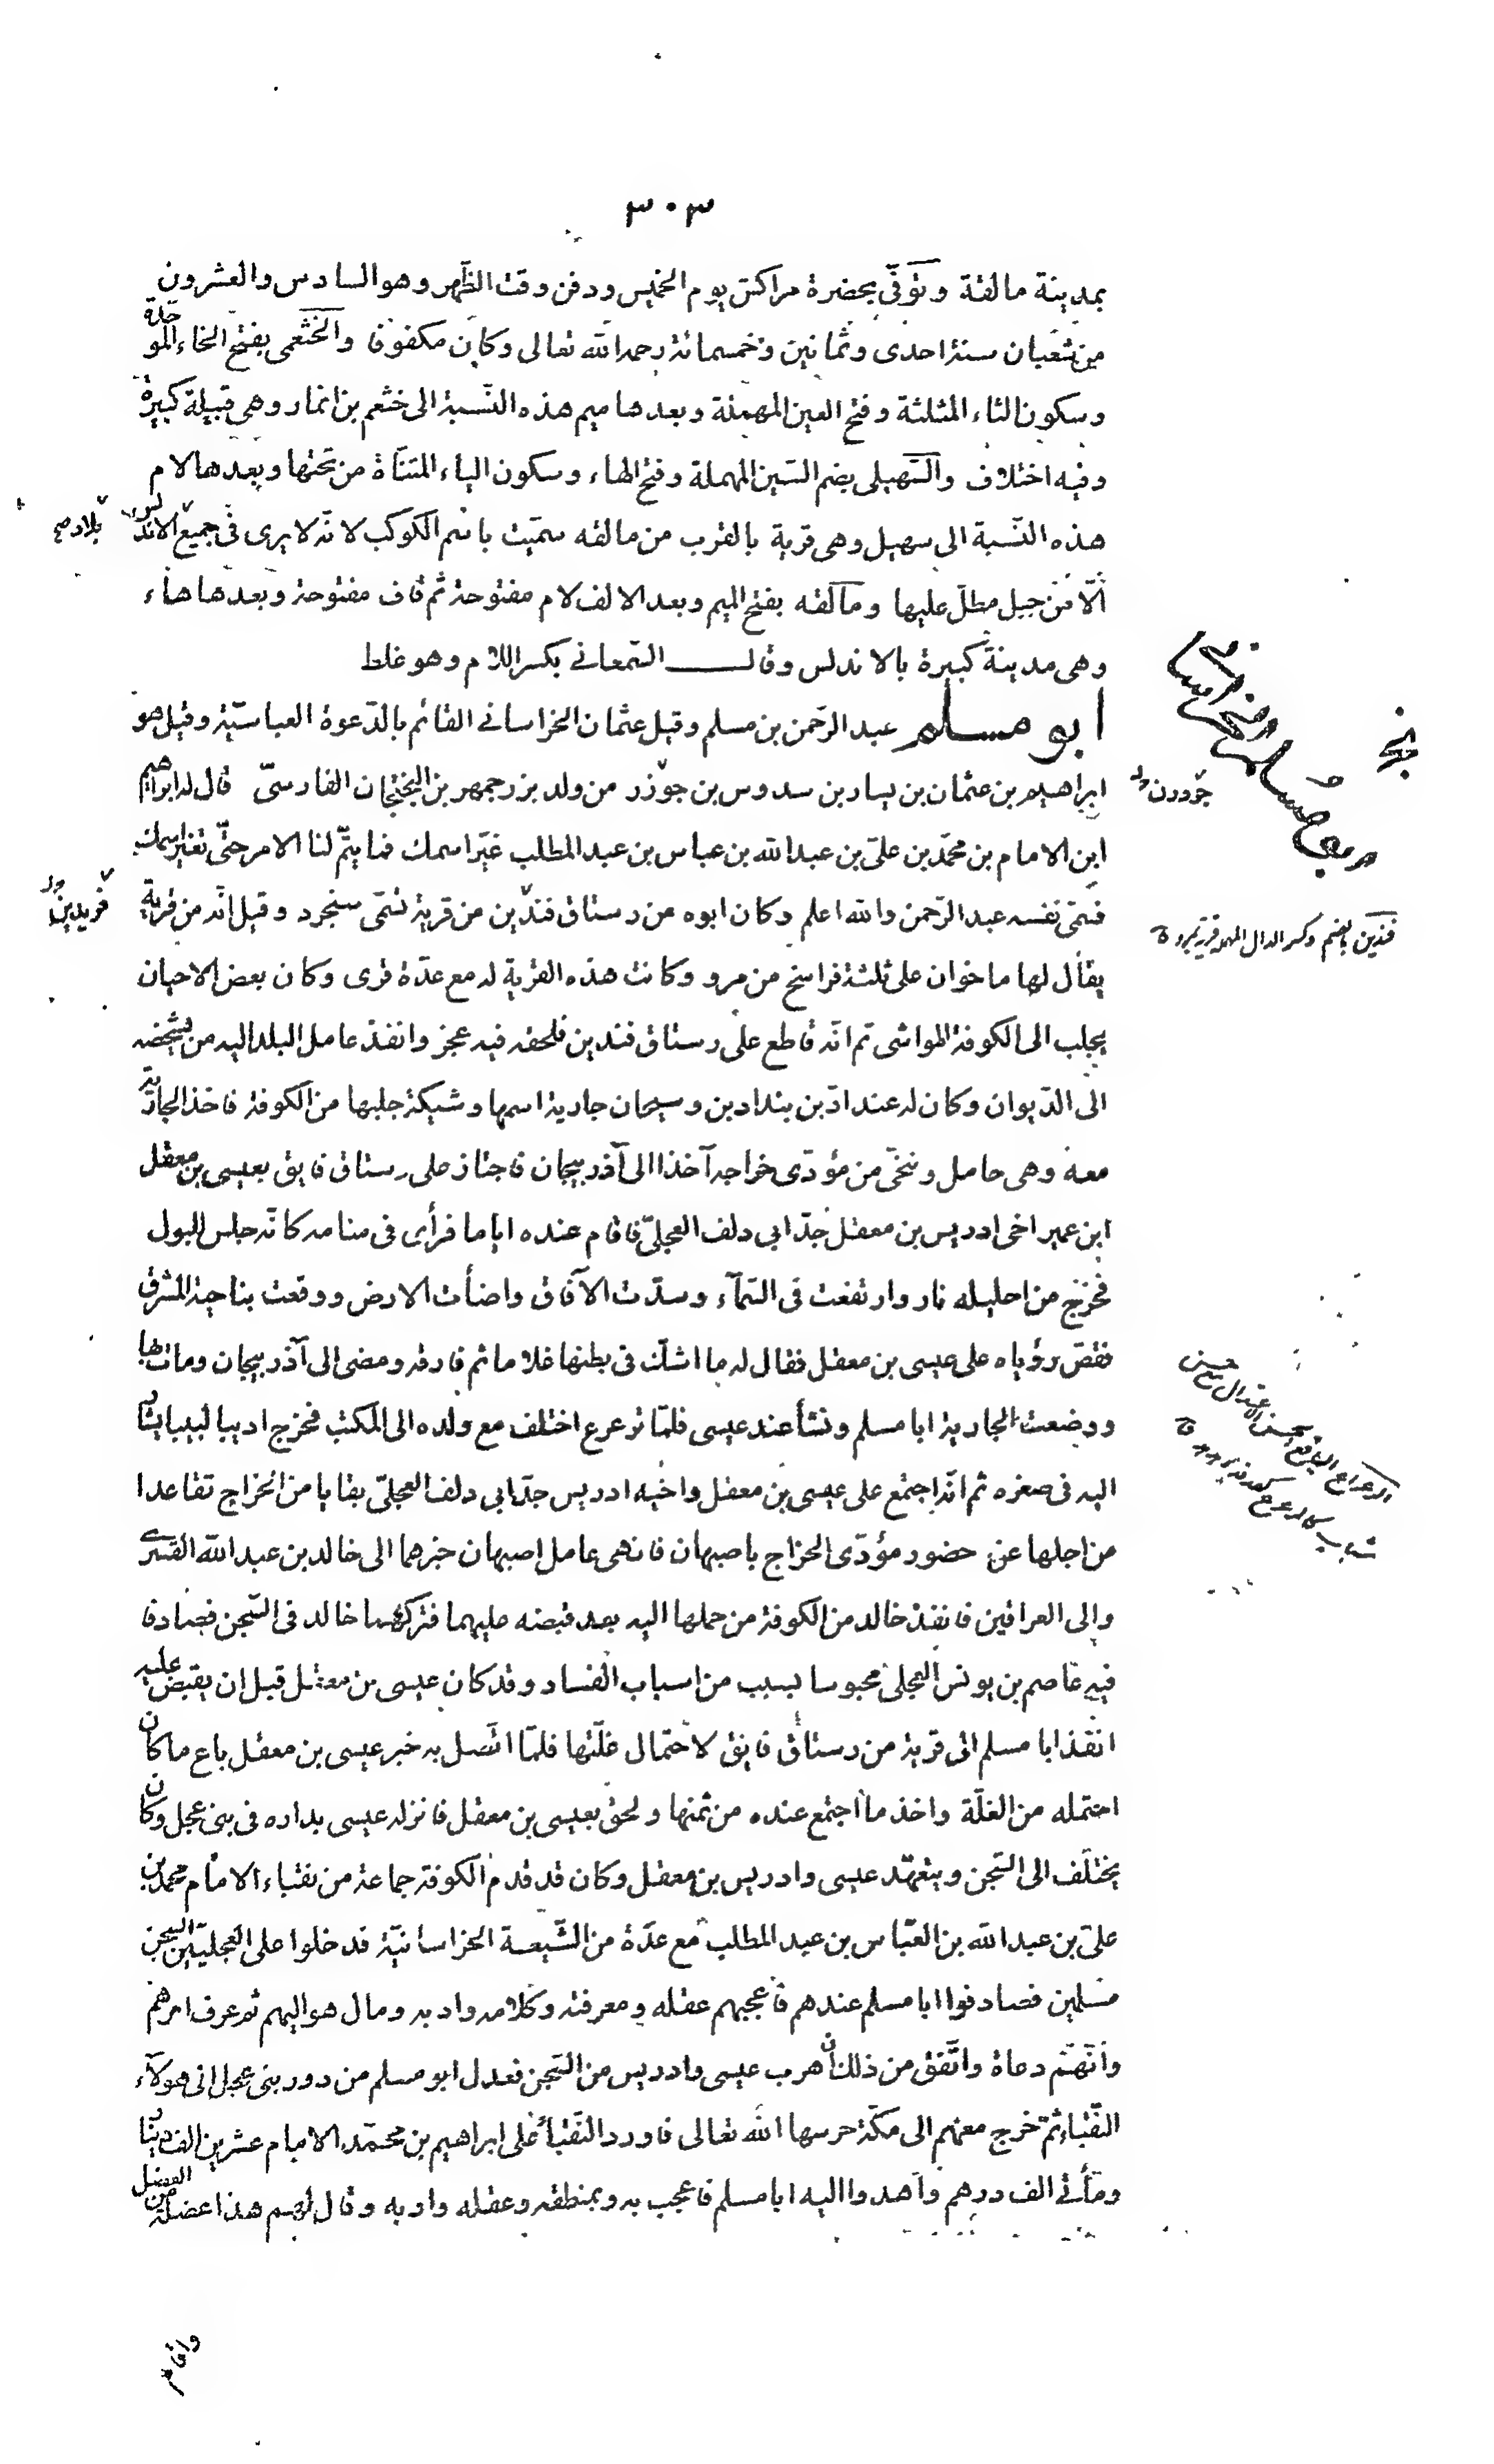 ٣٠٣
بمدينة مالقة وتوفّى بحضرة مراكش يوم الخميس ودفن وقت الظّهر وهو السادس والعشرون
من شعبان سنة احدى وثمانين وخمسمائة رحمه الله تعالى وكان مكفوفا والخثعمى بفتح الخاء الموحّدة
وسكون الثاء المثلثة وفتح العين المهملة وبعدها ميم هذه النّسبة الى خثعم بن انمار وهى قبيلة كبيرة
وفيه اختلاف والسّهيلى بضم السّين المهملة وفتح الهاء وسكون الياء المثنّاة من تحتها وبعدها لام
هذه النّسبة الى سهيل وهى قرية بالقرب من مالقه سمّيت باسم الكوكب لانّه لا يرى فى جميع الاندلس
بلاد صح
الّا من جبل مطلّ عليها ومالقه بفتح الميم وبعد الالف لام مفتوحة ثم قاف مفتوحة وبعدها هاء
وهى مدينة كبيرة بالاندلس وقال السّمعانى بكسر اللام وهو غلط
ابو مسلم عبد الرّحمن بن مسلم وقيل عثمان الخراسانى القائم بالدّعوة العباسيّة وقيل هو
ابو مسلم الخراسانى
ابراهيم بن عثمان بن يسار بن سدوس بن جوذر من ولد بزرجمهر بن البختجان الفارسىّ قال له ابراهيم
جودرن
ابن الامام بن محمّد بن علىّ بن عبد الله بن عباس بن عبد المطلب غيّر اسمك فما يتمّ لنا الامر حتّى تغير اسمك
فسمّى نفسه عبد الرّحمن والله اعلم وكان ابوه من رستاق فندين من قرية تسمّى سنجرد وقيل انّه من قرية
فريدين
فندين بالضم وكسر الدال المهملة قرية بمرو
يقال لها ماخوان على ثلثة فراسخ من مرو وكانت هذه القرية له مع عدّة قرى وكان بعض الاحيان
يجلب الى الكوفة المواشى ثم انّه قاطع على رستاق فندين فلحقه فيه عجز وانفذ عامل البلد اليه من يشخصه
الى الدّيوان وكان له عند اذين بنداد بن وسيحان جارية اسمها وشيكة جلبها من الكوفة فاخذ الجارية
معه وهى حامل وتنحّى من مؤدّى خراجه آخذا الى آذربيجان فاجتاز على رستاق فايق بعيسى بن معقل
ابن عمير اخى ادريس بن معقل جدّ ابى دلف العجلىّ فاقام عنده اياما فرأى فى منامه كانّه جلس للبول
فخرج من احليله نار وارتفعت فى السّمآء وسدّت الآفاق واضأت الارض ووقعت بناحية المشرق
فقصّ رؤياه على عيسى بن معقل فقال له ما اشكّ فى بطنها غلاما ثم فارقه ومضى الى آذربيجان ومات بها
ووضعت الجارية ابا مسلم ونشأ عند عيسى فلمّا ترعرع اختلف مع ولده الى المكتب فخرج اديبا لبيبا يشار
اليه فى صغره ثم انّه اجتمع على عيسى بن معقل واخيه ادريس جدّ ابى دلف العجلىّ بقايا من الخراج تقاعدا
من اجلها عن حضور مؤدّى الخراج باصبهان فانهى عامل اصبهان خبرهما الى خالد بن عبد الله القسرى
والى العراقين فانفذ خالد من الكوفة من حملها اليه بعد قبضه عليهما فتركهما خالد فى السّجن فصادفا
فيه عاصم بن يونس العجلى محبوسا بسبب من اسباب الفساد وقد كان عيسى بن معقل قبل ان يقبض عليه
انفذ ابا مسلم الى قرية من رستاق فايق لاحتمال غلّتها فلمّا اتّصل به خبر عيسى بن معقل باع ما كان
احتمله من الغلّة واخذ ما اجتمع عنده من ثمنها ولحق بعيسى بن معقل فانزله عيسى بداره فى بنى عجل وكان
يختلف الى السّجن ويتعهّد عيسى وادريس بن معقل وكان قد قدم الكوفة جماعة من نقباء الامام محمد بن
علىّ بن عبد الله بن العبّاس بن عبد المطلب مع عدّة من الشّيعة الخراسانيّة فدخلوا على العجليّين السجن
مسلمين فصادفوا ابا مسلم عندهم فاعجبهم عقله ومعرفته وكلامه وادبه ومال هو اليهم ثم عرف امرهم
وانّهم دعاة واتّفق من ذلك ان هرب عيسى وادريس من السّجن فعدل ابو مسلم من دور بنى عجل الى هولآء
النّقباء ثمّ خرج معهم الى مكّة حرسها الله تعالى فاورد النّقباء على ابراهيم بن محمّد الامام عشرين الف دينار
ومأتى الف درهم واهدوا اليه ابا مسلم فاعجب به وبمنطقه وعقله وادبه وقال لهم هذا عضلة من العضل
واقام